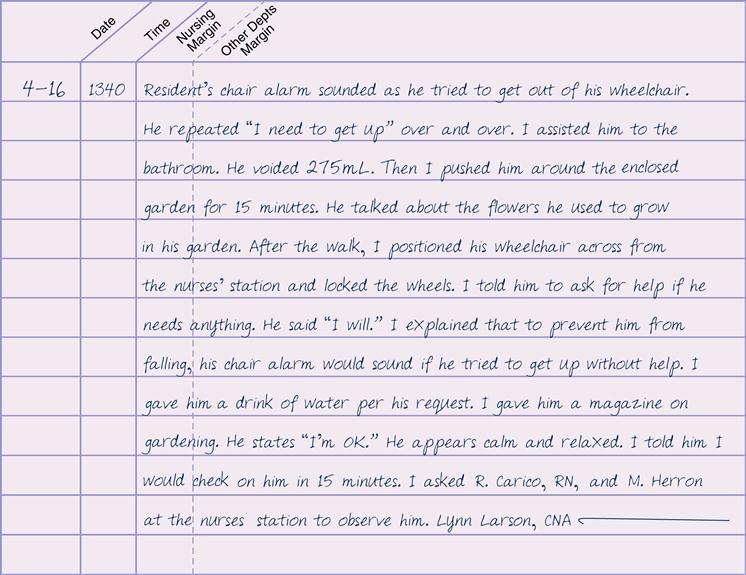 Date Time Nursing Margin Other Depts Margin
4-16 1340 Resident's chair alarm sounded as he tried to get out of his wheelchair.
He repeated "I need to get up" over and over. I assisted him to the
bathroom. He voided 275mL. Then I pushed him around the enclosed
garden for 15 minutes. He talked about the flowers he used to grow
in his garden. After the walk, I positioned his wheelchair across from
the nurses' station and locked the wheels. I told him to ask for help if he
needs anything. He said "I will." I explained that to prevent him from
falling, his chair alarm would sound if he tried to get up without help. I
gave him a drink of water per his request. I gave him a magazine on
gardening. He states "I'm OK." He appears calm and relaxed. I told him I
would check on him in 15 minutes. I asked R. Carico, RN, and M. Herron
at the nurses' station to observe him. Lynn Larson, CNA